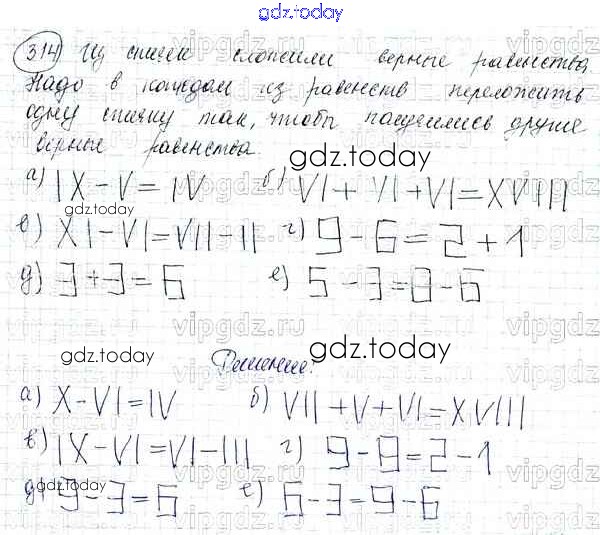 gdz.today
314) Из спичек сложили верные равенства.
Надо в каждом из равенств переложить
одну спичку так, чтобы получились другие
верные равенства.
gdz.today
а) IX - V = IV б) VI + VI + VI = XVIII
gdz.today
в) XI - VI = VII - II г) 9 - 6 = 2 + 1
д) 3 + 3 = 6 е) 5 - 3 = 8 - 6
gdz.today gdz.today
Решение:
а) X - VI = IV б) VII + V + VI = XVIII
в) IX - VI = VI - III г) 9 - 8 = 2 - 1
д) 9 - 3 = 6 е) 6 - 3 = 9 - 6
gdz.today